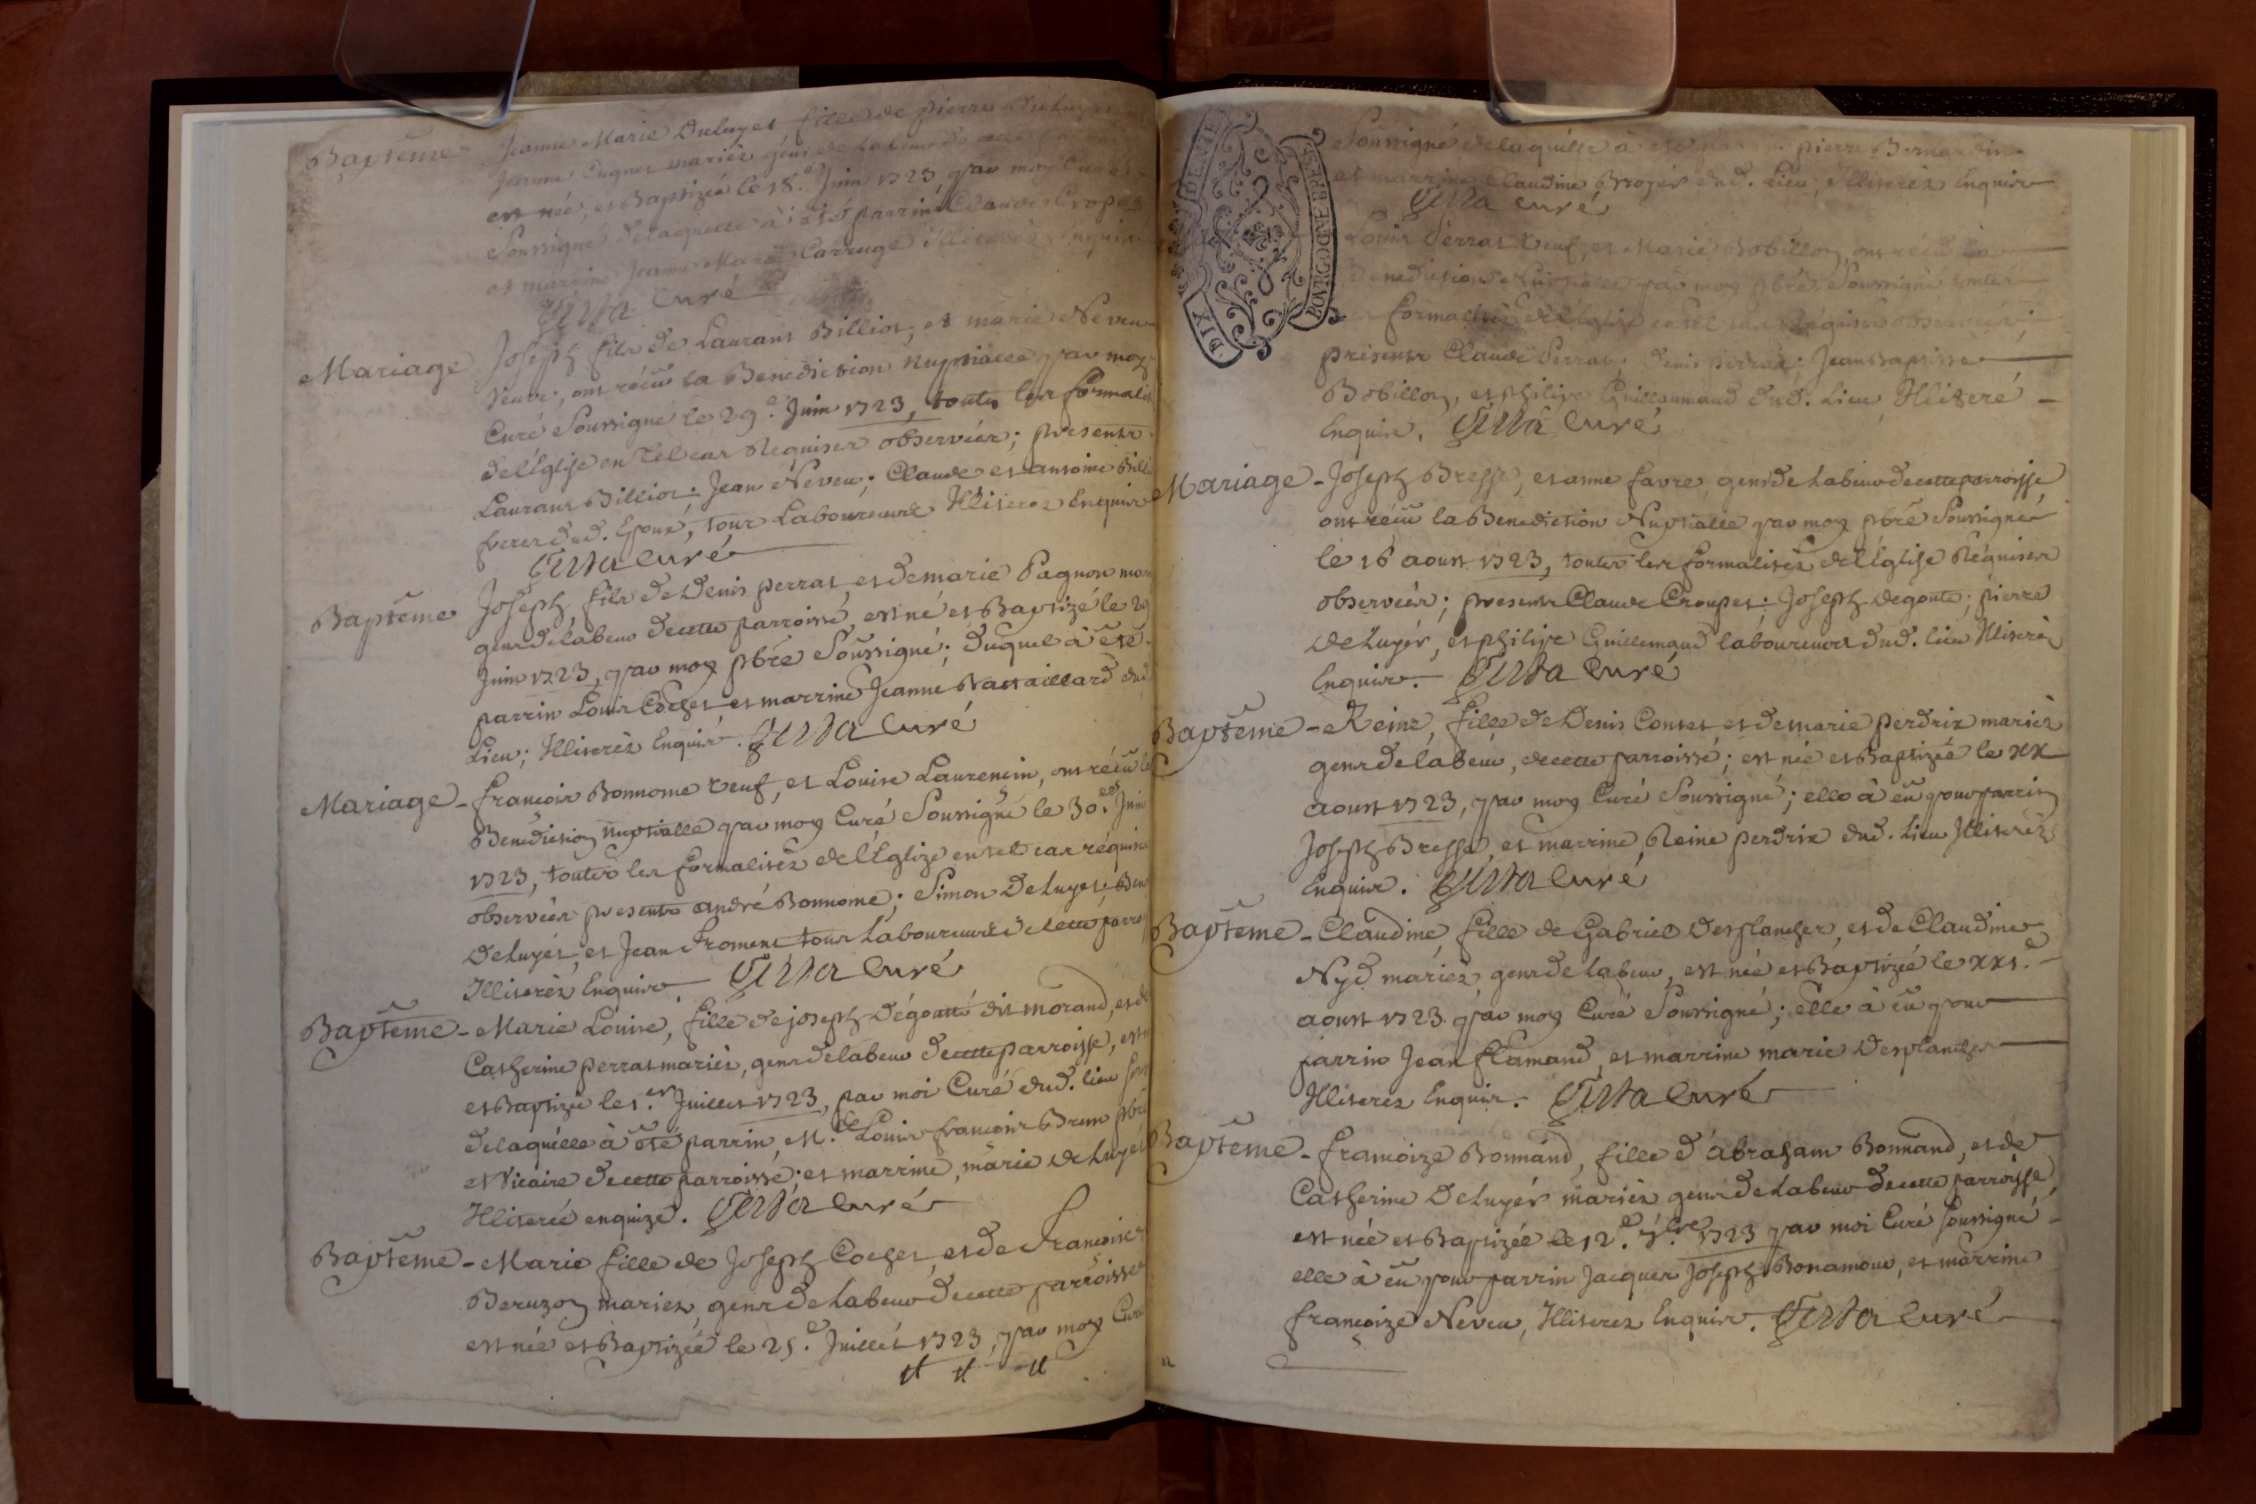 Baptême - Jeanne Marie Deluyet fille de pierre Deluyet
Jeanne mariés gens de labeur de
est née, et Baptizée le 18.e Juin 1723, par moy Curé
Soussigné de laquelle à été parrin Claude Cropet
et marrine Jeanne Marie Carruge Illiterés Enquis
Curé
Mariage Joseph fils de Laurans Billiot, et marie Neveu
veuve, ont réçu la Benediction nuptialle par moy
Curé Soussigné le 29.e Juin 1723, toutes les formalit
de l'Eglise en tel cas Requises observées; presents
Laurans Billiot; Jean Neveu; Claude et antoine Billi
freres dud. Epoux, tous Laboureurs Illiterez Enquis
Curé
Baptême Joseph fils de Denis perrat, et de marie Pagnon mar
gens de labeur de cette parroisse, est né et Baptizé le 29
Juin 1723, par moy pbre Soussigné; duquel à été
parrin Louis Cochet et marrine Jeanne Battaillard dud
Lieu; Illiterés Enquis. Curé
Mariage - françois Bonnome veuf, et Louise Laurencin, ont réçu la
Benediction nuptialle par moy Curé Soussigné le 30.e Juin
1723, toutes les formalités de l'Eglize en tel cas réquise
observées presents andré Bonnome; Simon Deluyet; Ben
Deluyet, et Jean froment tous Laboureurs de cette parro
Illiterés Enquis. Curé
Baptême - Marie Louise, fille de joseph Dégoutte dit morand, et de
Catherine perrat mariés, gens de labeur de cette parroisse, est n
et Baptizée le 1.er Juillet 1723, par moi Curé dud. lieu sou
de laquelle à été parrin, M.re Louis françois Brun pbre
et Vicaire de cette parroisse; et marrine, marie deluyet
Illiterée enquize. Curé
Baptême - Marie fille de Joseph Cochet, et de françoise
Beruzoy mariez, gens de labeur de cette parroisse
est née et Baptizée le 25.e Juillet 1723, par moy Curé
Soussigné de laquelle à été pierre Bernardin
et marrine Claudine Broyer dud. Lieu, Illiterés Enquis
Curé
Louis Perrat veuf, et Marie Bobillon, ont réçu la
Benediction Nuptialle par moy pbre Soussigné toutes
les formalités de l'Eglise en tel cas Réquises observées;
presents Claude Perrat; Denis perrat; Jean Baptiste
Bobillon, et philipe Guillaumaud dud. Lieu, Illiteré
Enquis. Curé
Mariage - Joseph Bresse, et anne favre, gens de labeur de cette parroisse
ont réçu la Benediction Nuptialle par moy pbre Soussigné
le 16 aoust 1723, toutes les formalités de l'Eglise Réquises
observées; presents Claude Cropet; Joseph degoutte; pierre
deluyér, et philipe Guillemaud laboureurs dud. lieu Illiterés
Enquis. Curé
Baptême - Reine, fille de Denis Contet, et de marie perdrix mariés
gens de labeur, de cette parroisse; est née et Baptizée le XX
aoust 1723, par moy Curé Soussigné; elle à eu pour parrin
Joseph Bresse, et marrine, Reine perdrix dud. lieu Illiterés
Enquis. Curé
Baptême - Claudine, fille de Gabriel Desplanches, et de Claudine
Nyd mariez, gens de labeur, est née et Baptizée le XXI.e
aoust 1723. par moy Curé Soussigné; elle à eu pour
parrin Jean flamand, et marrine marie Desplanches
Illiterez Enquis. Curé
Baptême - françoize Bonnand, fille d'abraham Bonnand, et de
Catherine Deluyér mariés gens de labeur de cette parroisse,
est née et Baptizée le 12.e 7bre 1723 par moi Curé soussigné
elle à eu pour parrin Jacques Joseph Bonamour, et marrine
françoize Neveu, Illiterez Enquis. Curé